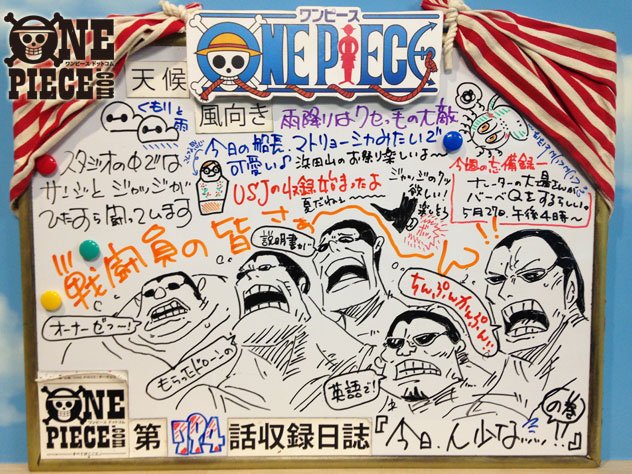 ONE
PIECE
.COM
ワンピース ドットコム
ワンピース
ONE PIECE
天候
くもりと雨
風向き
雨降りはクセっもの大敵
今日の船長、マトリョーシカみたいで
可愛い♪浜田山のお祭り楽しいよ〜
USJの収録始まったよ
夏だねぇ〜
スタジオの中では
サンジとジャッジが
ひたすら闘っています
ジャッジのクツ
欲しい!
今週の忘備録ー
ナレーターの大場さんが
バーベQをするらしい。
5月27日、午後4時〜
戦闘員の皆さぁーん!!
説明書が〜
ちんぷんかんぷん!
オーナーゼフ〜!
もらったドローンの
英語で!
ONE
PIECE
.COM
ワンピース ドットコム
第794話収録日誌
『今日、人少な…!!』
の巻